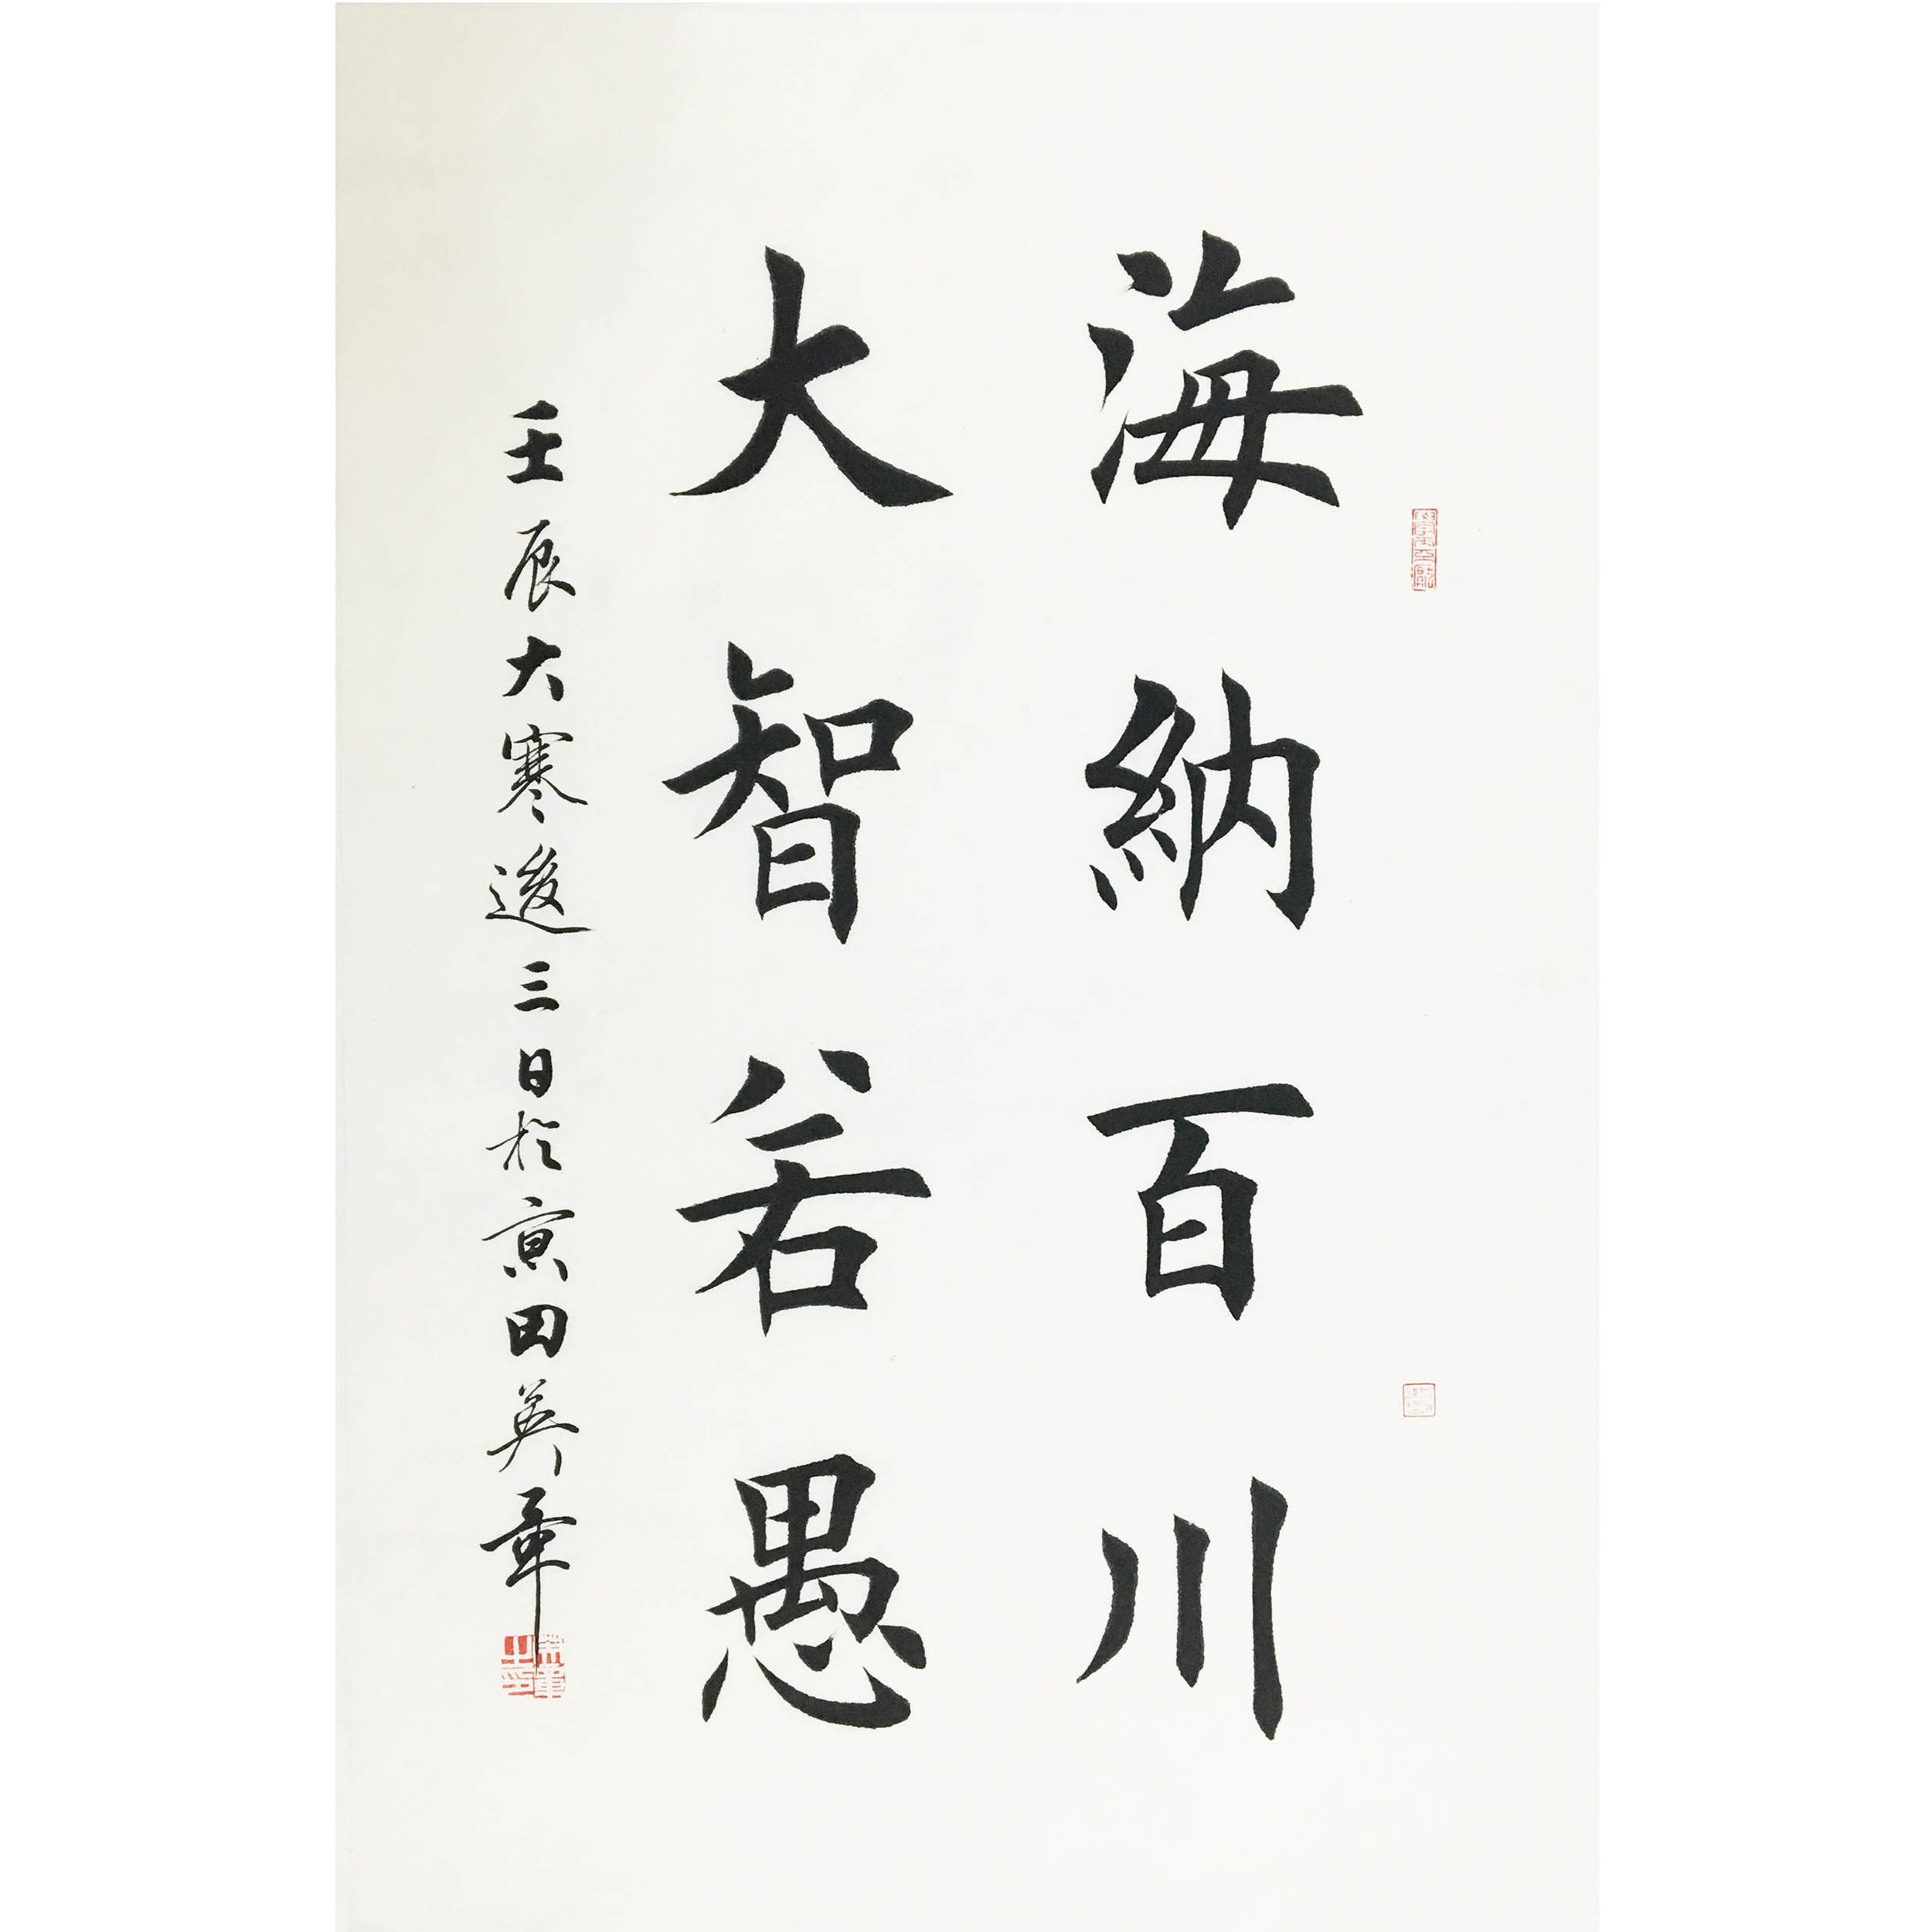 海納百川
大智若愚
壬辰大寒後三日於京田英章